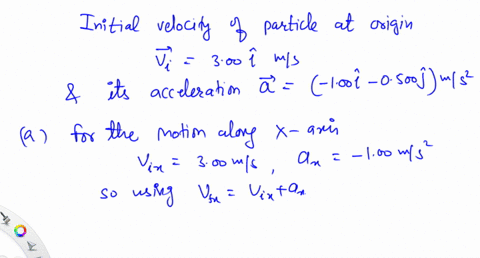 Initial velocity of particle at origin
v⃗ᵢ = 3.00 î m/s
& its acceleration a⃗ = (-1.00î - 0.500ĵ) m/s²
(a) for the motion along X-axis
Vᵢₓ = 3.00 m/s, aₓ = -1.00 m/s²
so using Vfₓ = Vᵢₓ + aₓ